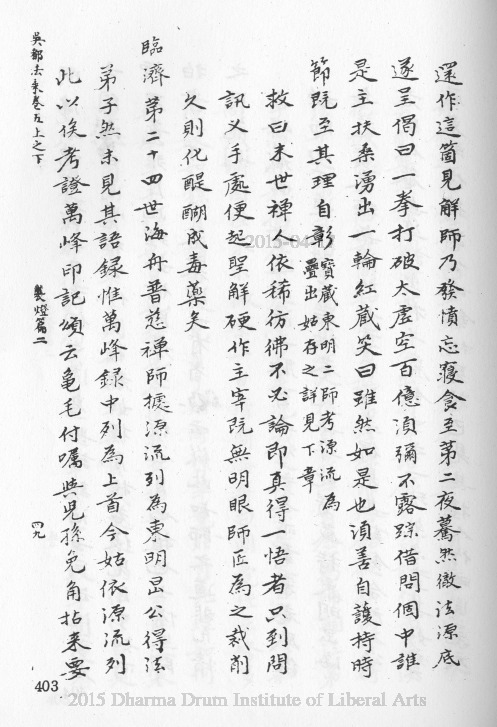 還作這箇見解師乃發憤忘寢食至第二夜驀然徹法源底
遂呈偈曰一拳打破太虛空百億須彌不露踪借問個中誰
是主扶桑湧出一輪紅藏笑曰雖然如是也須善自護持時
節既至其理自彰寶藏東明二師考源流為
疊出姑存之詳見下章
救曰末世禪人依稀彷彿不必論即真得一悟者只到問
訊义手處便起聖解硬作主宰既無明眼師匠為之裁削
久則化醍醐成毒藥矣
臨濟第二十四世海舟普慈禪師據源流列為東明旵公得法
弟子然未見其語錄惟萬峰錄中列為上首今姑依源流列
此以俟考證萬峰印記頌云龜毛付囑與兒孫兔角拈来要
吳都法乘卷五上之下
襲燈篇二
四九
403
2015-04-
2015 Dharma Drum Institute of Liberal Arts